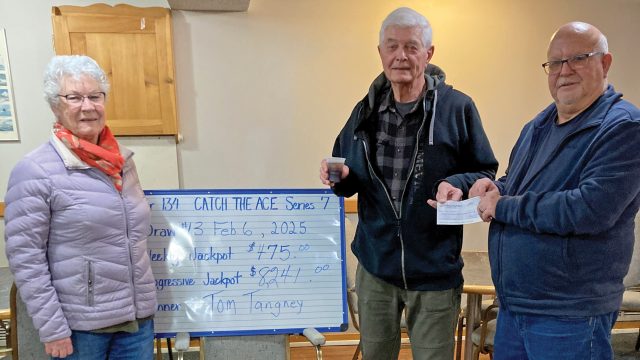 r 134 CATCH THE ACE Series 7
Draw #13 Feb 6, 2025
eekly Jackpot $475.00
gressive Jackpot $8,241.00
nner Tom Tangney